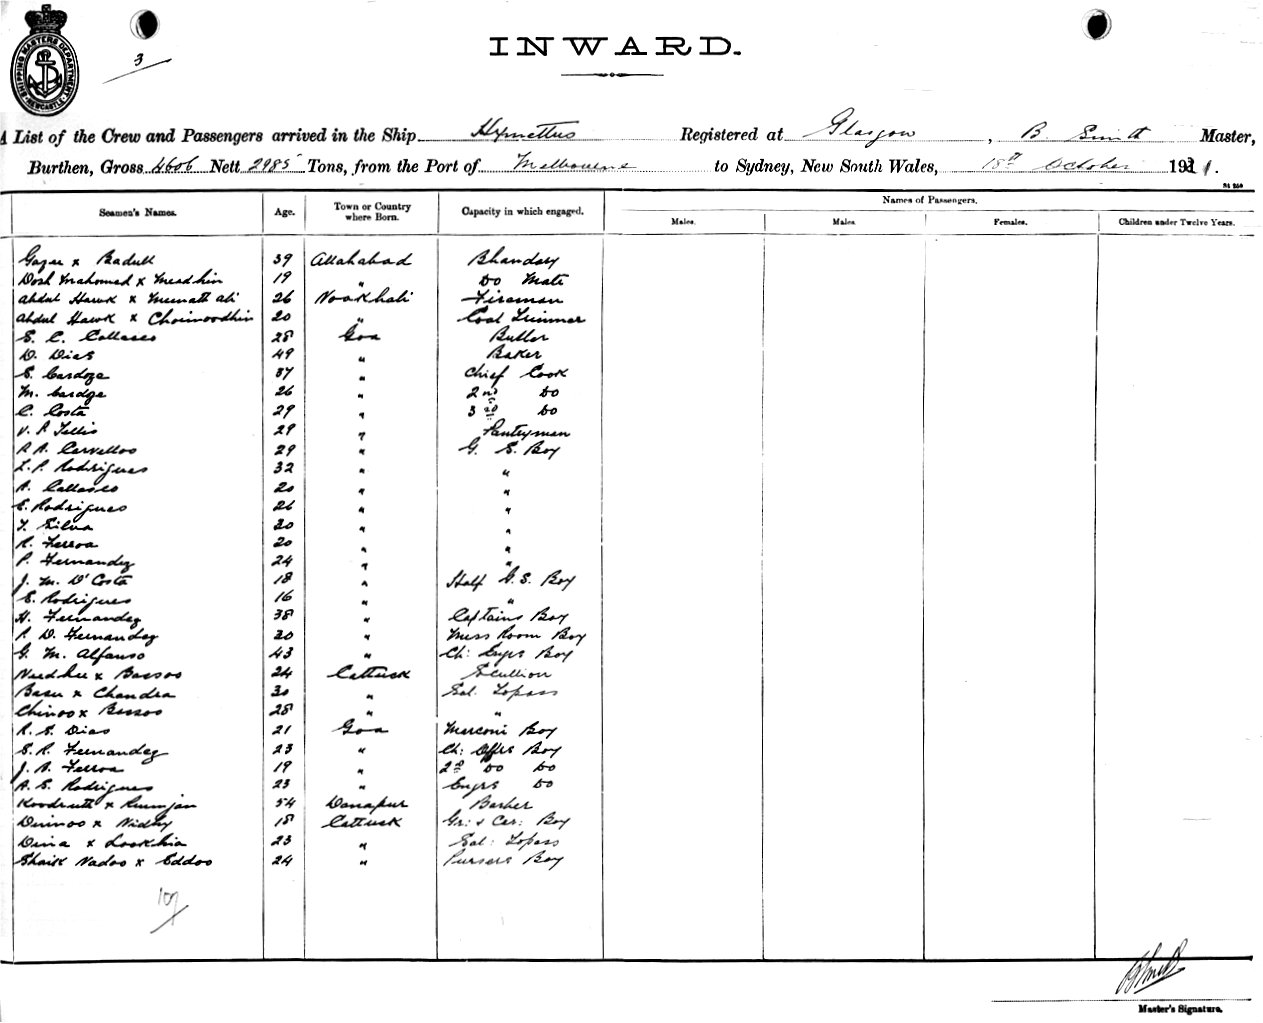 SHIPPING MASTERS DEPARTMENT NEWCASTLE
3
INWARD.
A List of the Crew and Passengers arrived in the Ship Hymettus Registered at Glasgow, B Smith Master,
Burthen, Gross 4606 Nett 2985 Tons, from the Port of Melbourne to Sydney, New South Wales, 18th October 1921.
Seamen's Names. Age. Town or Country where Born. Capacity in which engaged. Names of Passengers.
Males. Males. Females. Children under Twelve Years.
Gazee x Badull 39 Allahabad Bhandary
Dost Mahomed x Meadhin 19 " Do Mate
Abdul Hawk x Meenath Ali 26 Noakhali Fireman
Abdul Hawk x Choimoodhin 20 " Coal Trimmer
S. C. Collaseo 28 Goa Butler
D. Dias 49 " Baker
S. Cardoza 37 " Chief Cook
M. Cardoza 26 " 2nd Do
C. Costa 29 " 3rd Do
V. P. Tellis 29 " Pantryman
P. A. Carvelloo 29 " G. S. Boy
L. P. Rodrigues 32 " "
A. Collaseo 20 " "
E. Rodrigues 26 " "
T. Silva 20 " "
R. Ferroa 20 " "
P. Fernandez 24 " "
J. M. D'Costa 18 " Half G. S. Boy
E. Rodrigues 16 " "
H. Fernandez 38 " Captains Boy
P. D. Fernandez 20 " Mess Room Boy
G. M. Alfanso 43 " Ch: Engrs Boy
Nudhee x Bassoo 24 Cattuck Scullion
Basu x Chandra 30 " Sal. Topass
Chinoo x Bassoo 28 " "
R. S. Dias 21 Goa Marconi Boy
S. R. Fernandez 23 " Ch: Offrs Boy
J. A. Ferroa 19 " 2nd Do Do
A. S. Rodrigues 23 " Engrs Do
Koodrutt x Rumjan 54 Danapur Barber
Dinnoo x Nidhy 18 Cattuck Gr: & Cer: Boy
Dina x Lookhia 23 " Sal: Topass
Shaik Nadoo x Eddoo 24 " Pursers Boy
107
B Smith
Master's Signature.